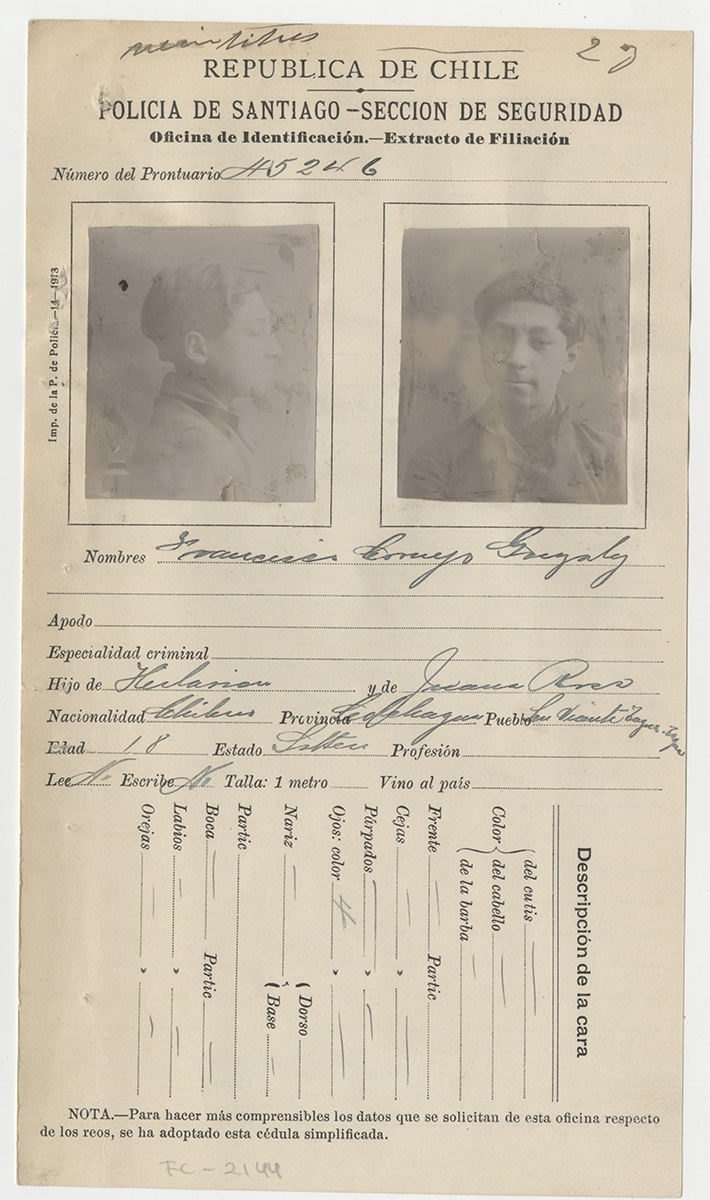 veintitres
23
REPUBLICA DE CHILE
POLICIA DE SANTIAGO–SECCION DE SEGURIDAD
Oficina de Identificación.—Extracto de Filiación
Número del Prontuario 45246
Imp. de la P. de Polic.—14—1913
Nombres Francisco Cornejo
Apodo
Especialidad criminal
Hijo de Hilarion y de Juana Rosa
Nacionalidad Chileno Provincia Colchagua Pueblo San Vicente Tagua-Tagua
Edad 18 Estado Soltero Profesión
Lee No Escribe No Talla: 1 metro Vino al país
Descripción de la cara
Color { del cutis —
del cabello —
de la barba —
Frente — Partic
Cejas — » —
Párpados — » —
Ojos: color 4 » —
Nariz — { Dorso
Base —
Partic
Boca — Partic —
Labios — » —
Orejas — » —
NOTA.—Para hacer más comprensibles los datos que se solicitan de esta oficina respecto
de los reos, se ha adoptado esta cédula simplificada.
FC-2144